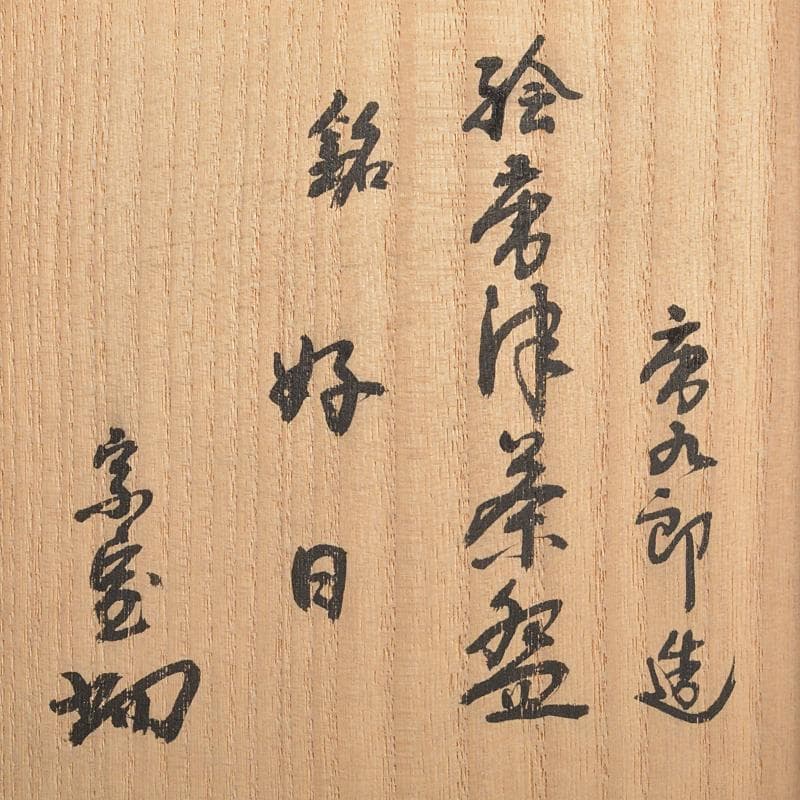 唐九郎造
絵唐津茶盌
銘 好日
宗室